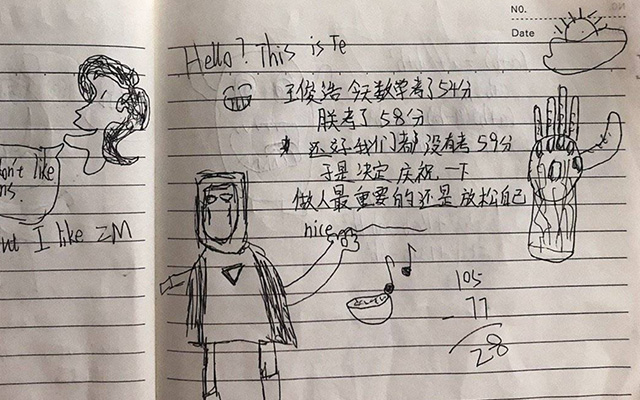 Hello? This is Te
王俊浩 今天数学考了54分
朕考了58分
还好我们都没有考59分
于是决定庆祝一下
做人最重要的还是放松自己
nice
105
- 77
28
NO.
Date
don't like
I like ZM